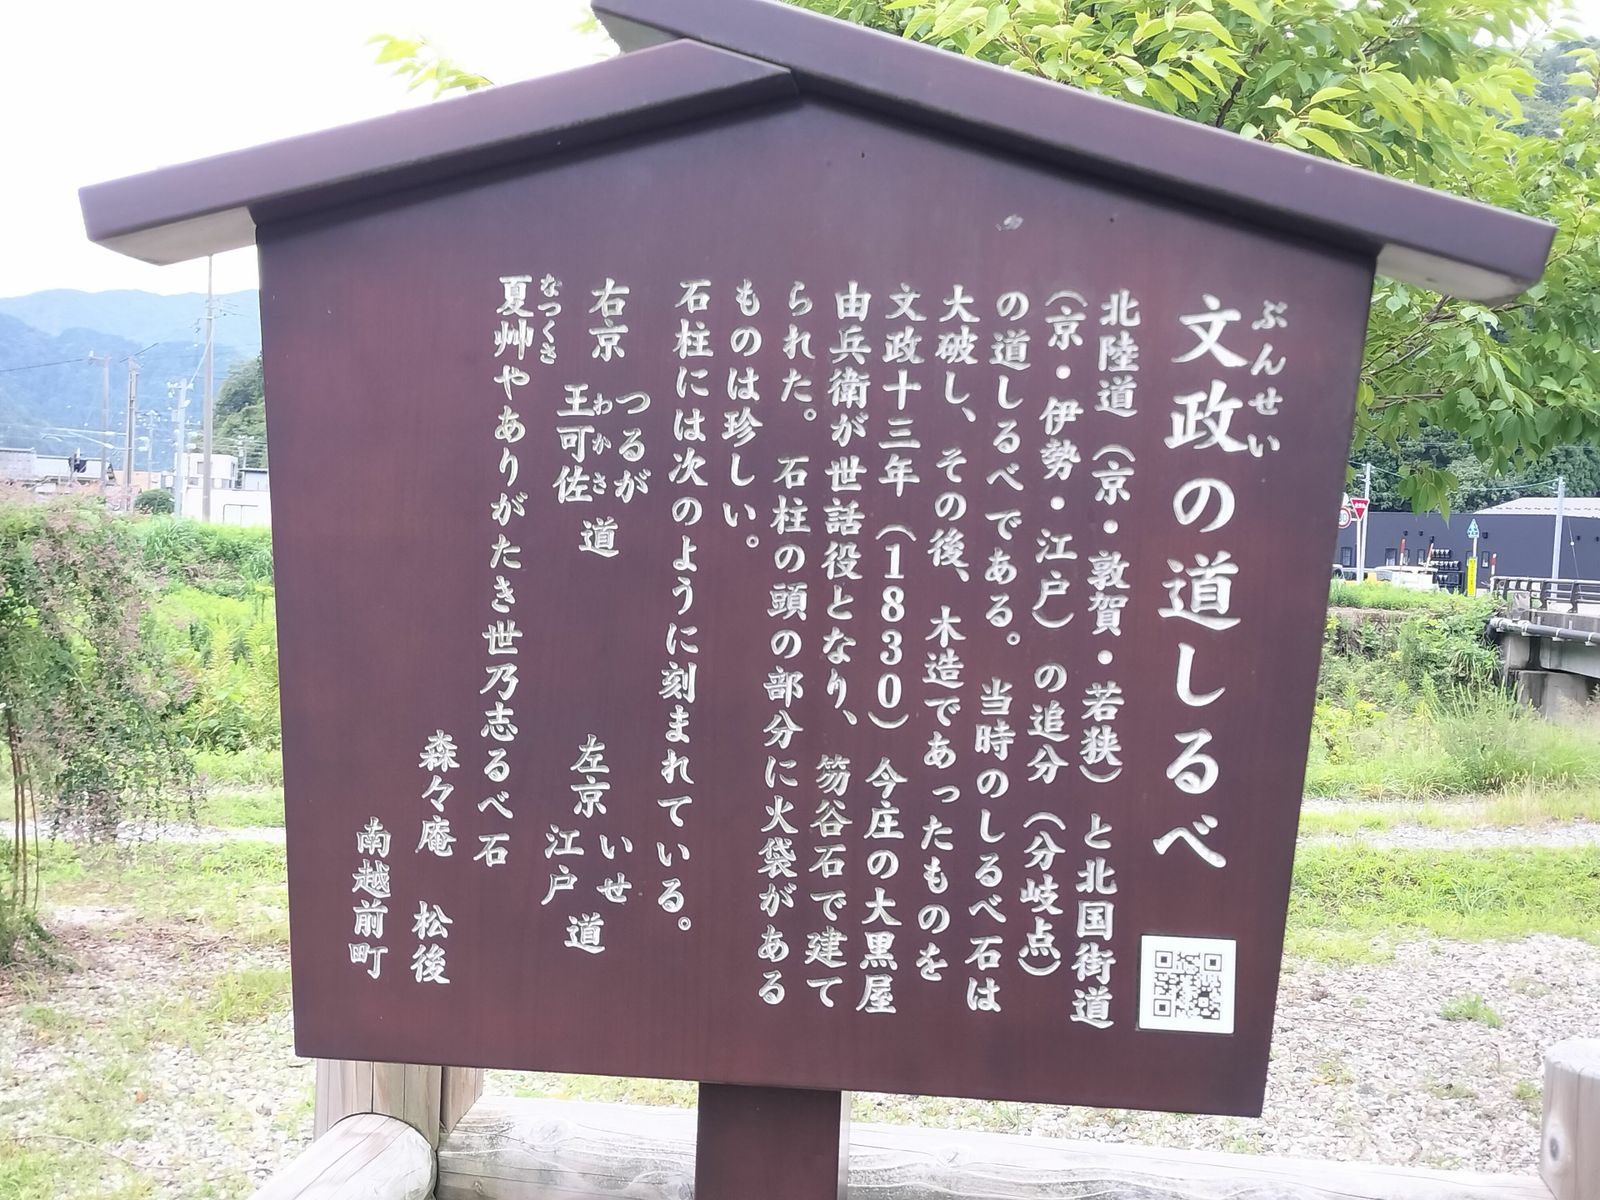 文政の道しるべ
ぶんせい
北陸道（京・敦賀・若狭）と北国街道
（京・伊勢・江戸）の追分（分岐点）
の道しるべである。当時のしるべ石は
大破し、その後、木造であったものを
文政十三年（1830）今庄の大黒屋
由兵衛が世話役となり、笏谷石で建て
られた。石柱の頭の部分に火袋がある
ものは珍しい。
石柱には次のように刻まれている。
右京 つるが 王可佐 道 左京 いせ 江戸 道
わかさ
夏艸やありがたき世乃志るべ石
なつくさ
森々庵 松後
南越前町